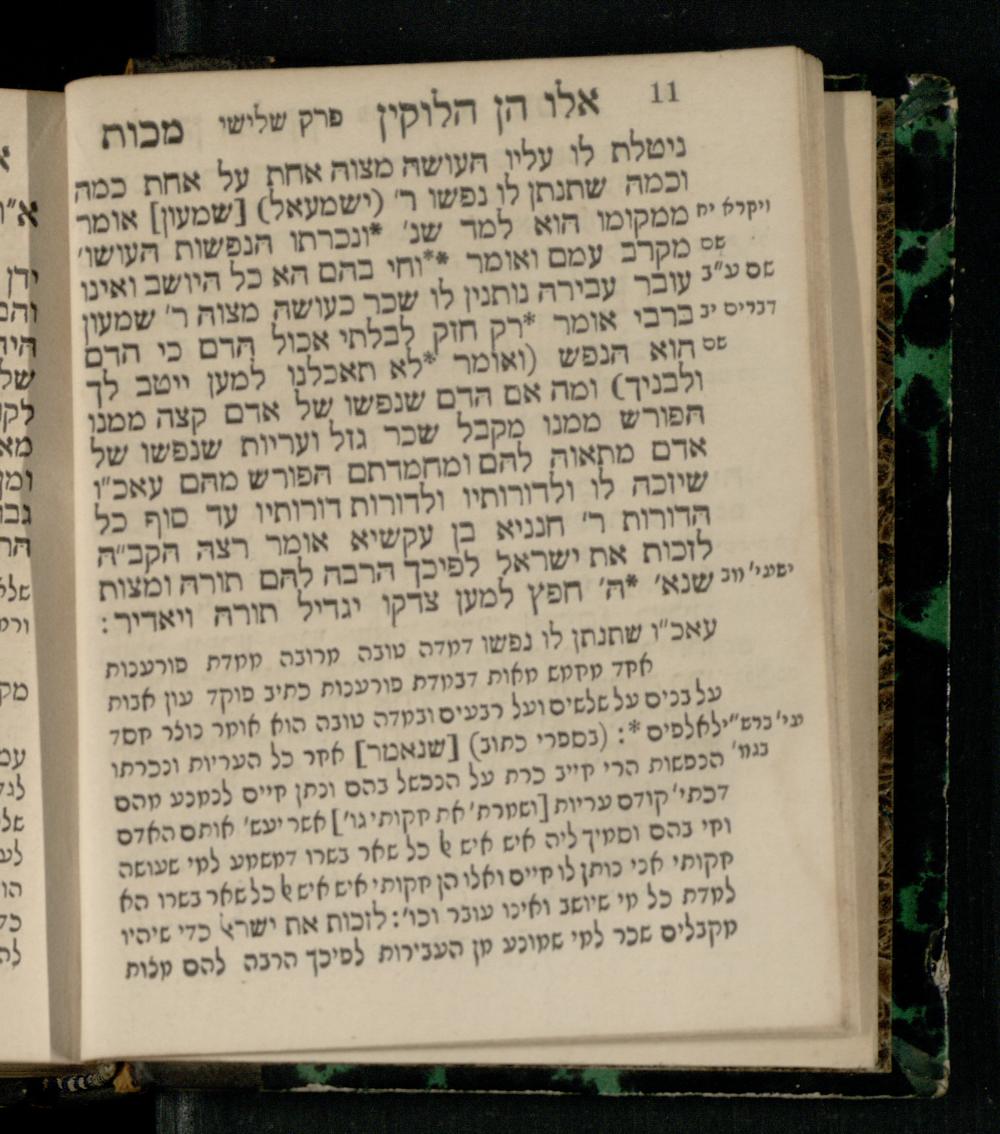 11 אלו הן הלוקין פרק שלישי מכות
ניטלת לו עליו העושה מצוה אחת על אחת כמה
וכמה שתנתן לו נפשו ר' (ישמעאל) [שמעון] אומר
ויקרא יח ממקומו הוא למד שנ' *ונכרתו הנפשות העושו'
שם מקרב עמם ואומר **וחי בהם הא כל היושב ואינו
שם ע"ב עובר עבירה נותנין לו שכר כעושה מצוה ר' שמעון
דברים יב ברבי אומר *רק חזק לבלתי אכול הדם כי הדם
שם הוא הנפש (ואומר *לא תאכלנו למען ייטב לך
ולבניך) ומה אם הדם שנפשו של אדם קצה ממנו
הפורש ממנו מקבל שכר גזל ועריות שנפשו של
אדם מתאוה להם ומחמדתם הפורש מהם עאכ"ו
שיזכה לו ולדורותיו ולדורות דורותיו עד סוף כל
הדורות ר' חנניא בן עקשיא אומר רצה הקב"ה
לזכות את ישראל לפיכך הרבה להם תורה ומצות
ישעי' מב שנא' *ה' חפץ למען צדקו יגדיל תורה ויאדיר:
עאכ"ו שתנתן לו נפשו דמדה טובה מרובה ממדת פורענות
אחד מחמש מאות דבמדת פורענות כתיב פוקד עון אבות
על בנים על שלשים ועל רבעים ובמדה טובה הוא אומר נוצר חסד
עי' ברש"י לאלפים *: (בספרי כתוב) [שנאמר] אחר כל העריות ונכרתו
בגמ' הנפשות הרי חייב כרת על הנכשל בהם ונתן חיים לנמנע מהם
דכתי' קודם עריות [ושמרת' את חקותי גו'] אשר יעש' אותם האדם
וחי בהם וסמיך ליה איש איש אל כל שאר בשרו דמשמע למי שעושה
חקותי אני נותן לו חיים ואלו הן חקותי איש איש אל כל שאר בשרו הא
למדת כל מי שיושב ואינו עובר וכו': לזכות את ישראל כדי שיהיו
מקבלים שכר למי שמונע מן העבירות לפיכך הרבה להם מצות